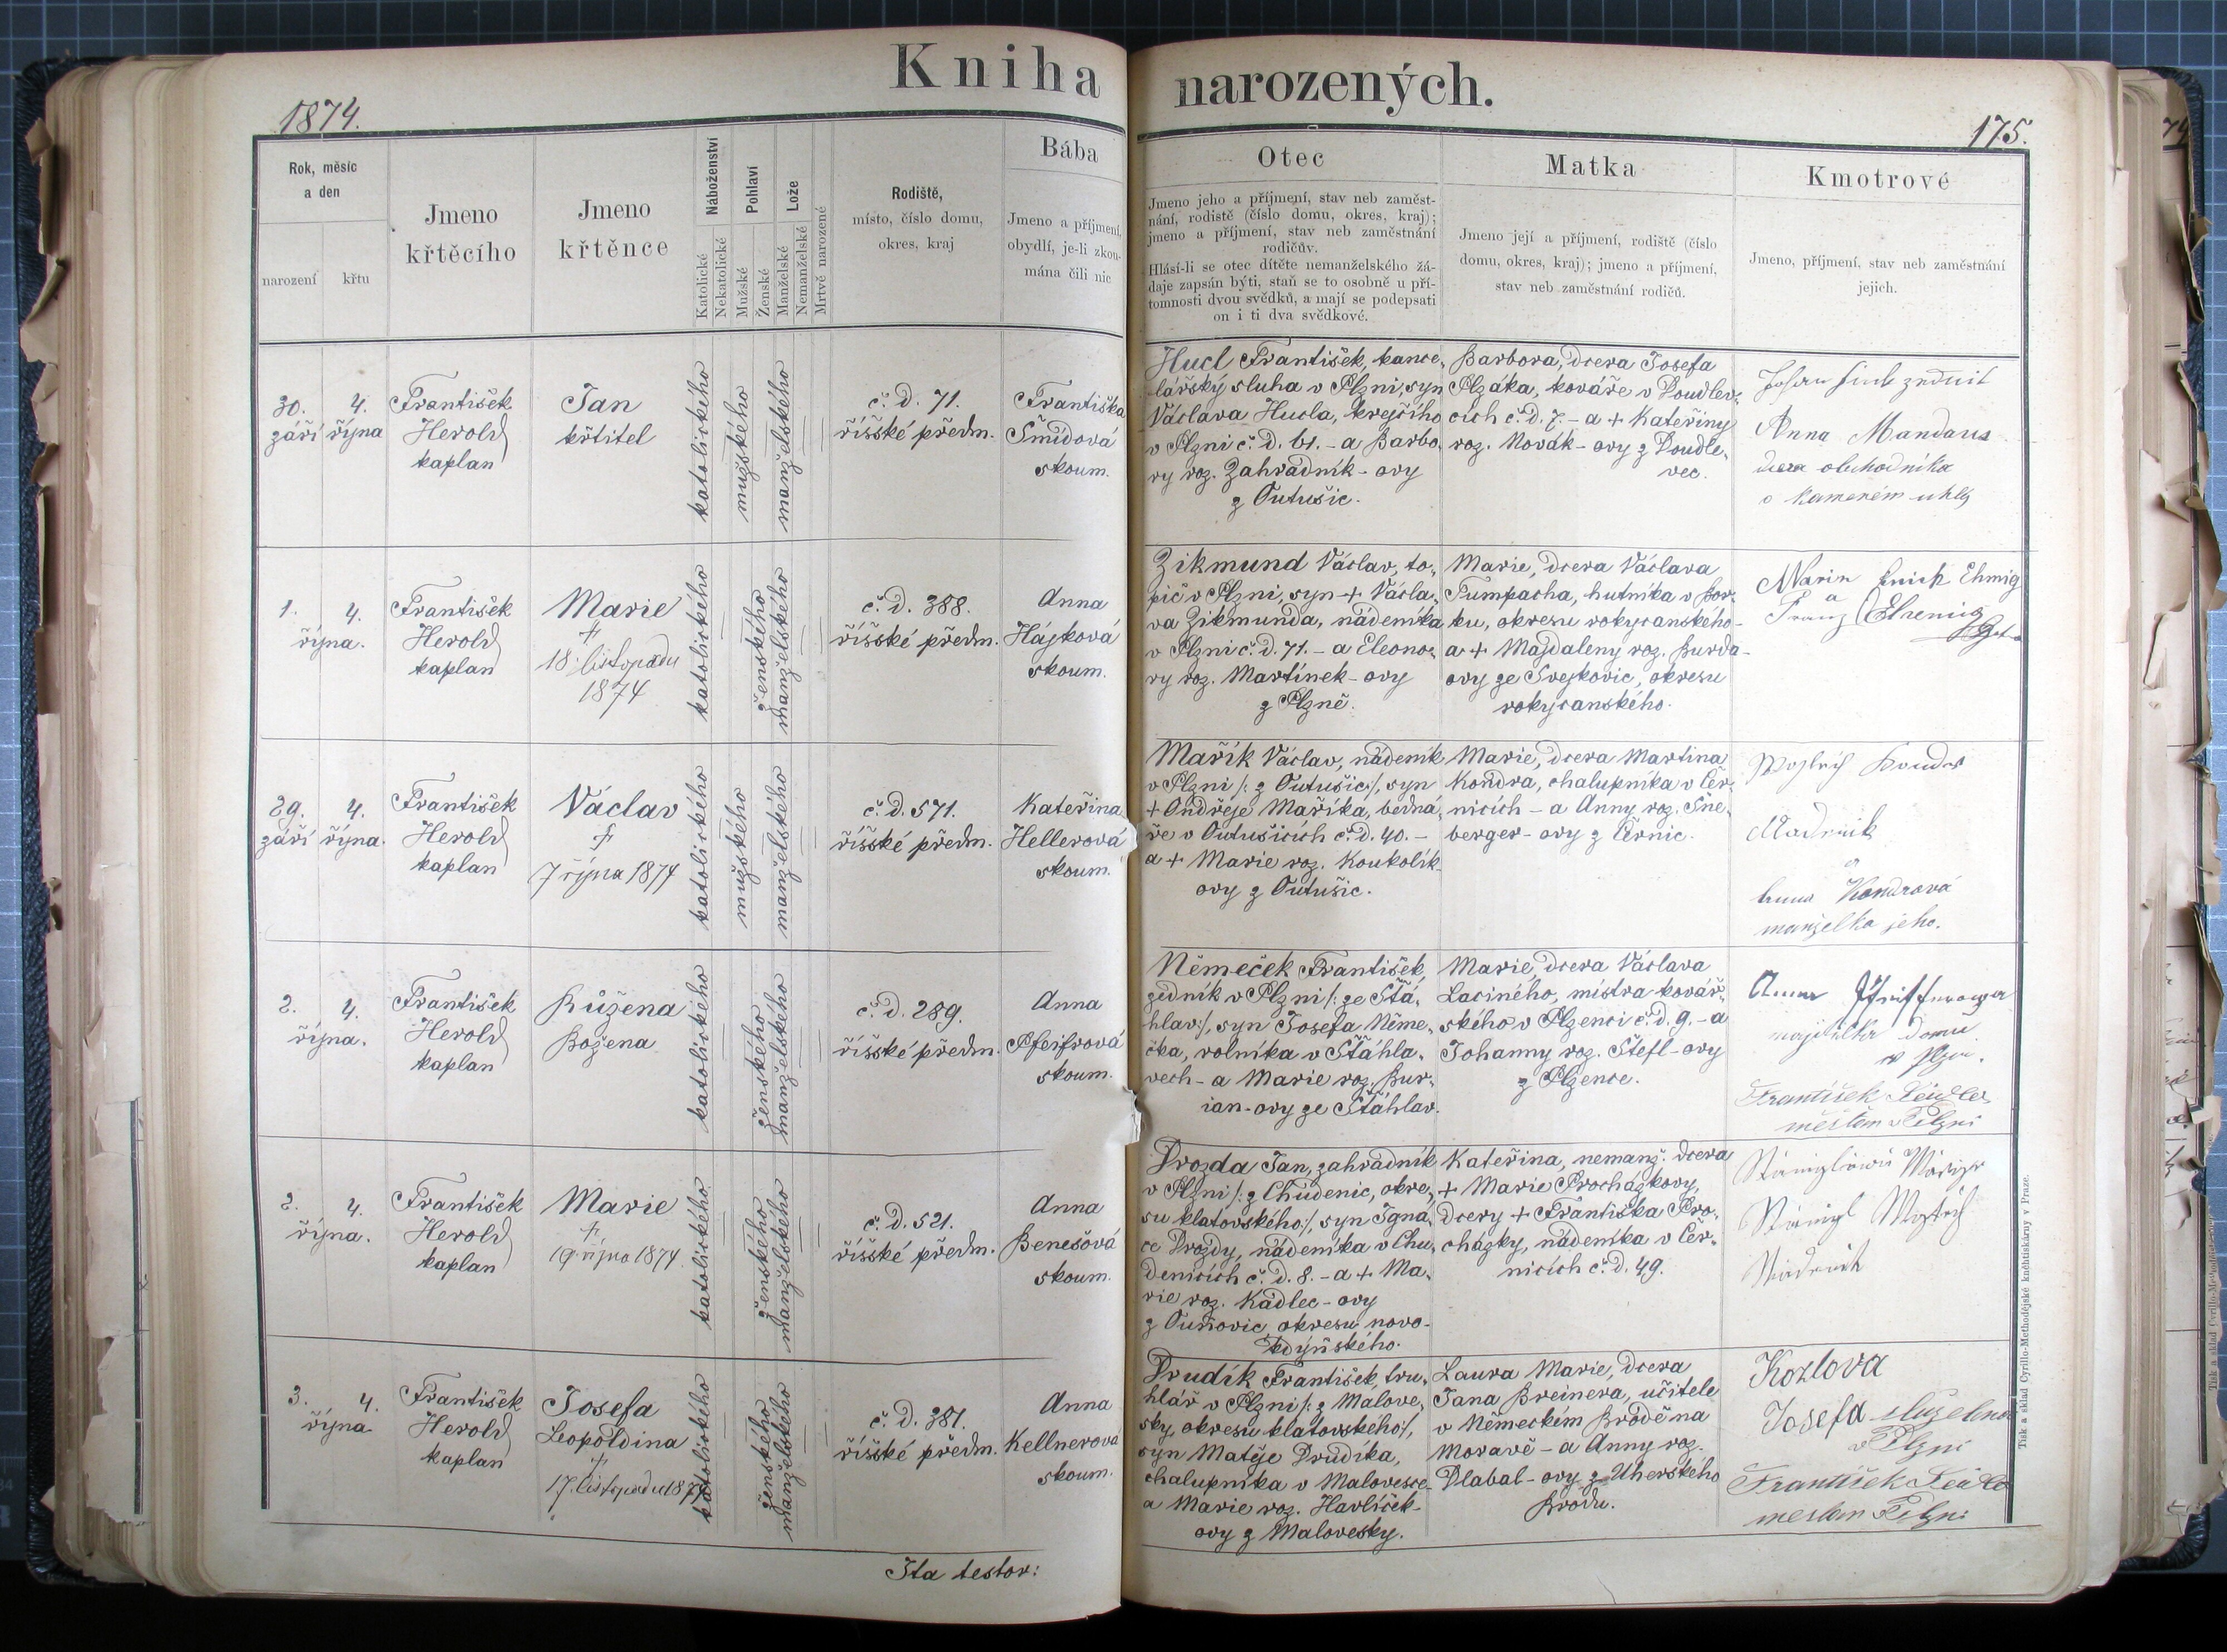 Kniha narozených.
1874.
175.
Rok, měsíc
a den
narození
křtu
Jmeno
křtěcího
Jmeno
křtěnce
Náboženství
Katolické
Nekatolické
Pohlaví
Mužské
Ženské
Lože
Manželské
Nemanželské
Mrtvě narozené
Rodiště,
místo, číslo domu,
okres, kraj
Bába
Jmeno a příjmení,
obydlí, je-li zkou-
mána čili nic
Otec
Jmeno jeho a příjmení, stav neb zaměst-
nání, rodiště (číslo domu, okres, kraj);
jmeno a příjmení, stav neb zaměstnání
rodičův.
Hlásí-li se otec dítěte nemanželského žá-
daje zapsán býti, staň se to osobně u pří-
tomnosti dvou svědků, a mají se podepsati
on i ti dva svědkové.
Matka
Jmeno její a příjmení, rodiště (číslo
domu, okres, kraj); jmeno a příjmení,
stav neb zaměstnání rodičů.
Kmotrové
Jmeno, příjmení, stav neb zaměstnání
jejich.
30.
září
4.
října
František
Herold
kaplan
Jan
křtitel
katolického
mužského
manželského
č. d. 71.
říšské předm.
Františka
Šmídová
skoum.
Hucl František, kance-
lářský sluha v Plzni, syn
Václava Hucla, krejčího
v Plzni č. d. 61. - a Barbo-
ry roz. Zahradník-ovy
z Outušic.
Barbora, dcera Josefa
Plzáka, kováře v Doudlev-
cích č. d. 7. - a + Kateřiny
roz. Novák-ovy z Doudle-
vec.
Anna Mandaus
dcera obchodníka
s kameném uhlý
1.
4.
října.
František
Herold
kaplan
Marie
+
18 listopadu
1874
katolického
ženského
manželského
č. d. 388.
říšské předm.
Anna
Hájková
skoum.
Zikmund Václav, to-
pič v Plzni, syn + Václa-
va Zikmunda, nádeníka
v Plzni č. d. 71. - a Eleono-
ry roz. Martínek-ovy
z Plzně.
Marie, dcera Václava
Tumpacha, hutníka v Bor-
ku, okresu rokycanského -
a + Majdaleny roz. Burda-
ovy ze Svejkovic, okresu
rokycanského.
Ehmig
a
Franz Ehmig
29.
září
4.
října.
František
Herold
kaplan
Václav
+
7 října 1874
katolického
mužského
manželského
č. d. 571.
říšské předm.
Kateřina
Hellerová
skoum.
Mařík Václav, nádeník
v Plzni /: z Outušic :/, syn
+ Ondřeje Maříka, bedná-
ře v Outušicích č. d. 40. -
a + Marie roz. Koukolík-
ovy z Outušic.
Marie, dcera Martina
Kondra, chalupníka v Čer-
nicích - a Anny roz. Šne-
berger-ovy z Černic.
a
Kondrová
manželka jeho.
2.
4.
října.
František
Herold
kaplan
Růžena
Božena
katolického
ženského
manželského
č. d. 289.
říšské předm.
Anna
Pfeifrová
skoum.
Němeček František,
zedník v Plzni /: ze Stá-
hlav :/, syn Josefa Něme-
čka, rolníka v Stáhla-
vech - a Marie roz. Bur-
ian-ovy ze Stáhlav.
Marie, dcera Václava
Laciného, mistra kovář-
ského v Plzenci č. d. 9. - a
Johanny roz. Štefl-ovy
z Plzence.
Anna
majitelka domu
v Plzni.
František
měšťan v Plzni
2.
4.
října.
František
Herold
kaplan
Marie
+
19 října 1874
katolického
ženského
manželského
č. d. 521.
říšské předm.
Anna
Benešová
skoum.
Drozda Jan, zahradník
v Plzni /: z Chudenic, okre-
su klatovského :/, syn Igná-
ce Drozdy, nádeníka v Chu-
denicích č. d. 8. - a + Ma-
rie roz. Kádlec-ovy
z Ouňovic, okresu novo-
kdyňského.
Kateřina, nemanž. dcera
+ Marie Procházkovy,
dcery + Františka Pro-
cházky, nádeníka v Čer-
nicích č. d. 49.
3.
4.
října
František
Herold
kaplan
Josefa
Leopoldina
+
17. listopadu 1874
katolického
ženského
manželského
č. d. 381.
říšské předm.
Anna
Kellnerová
skoum.
Drudík František, tru-
hlář v Plzni /: z Malove-
sky, okresu klatovského :/,
syn Matěje Drudíka,
chalupníka v Malovesce
a Marie roz. Havlíček-
ovy z Malovesky.
Laura Marie, dcera
Jana Breinera, učitele
v Německém Brodě na
Moravě - a Anny roz.
Dlabal-ovy z Uherského
Brodu.
Kozlova
Josefa služebná
v Plzni
František
v Plzni
Ita testor:
Tisk a sklad Cyrillo-Methodějské knihtiskárny v Praze.